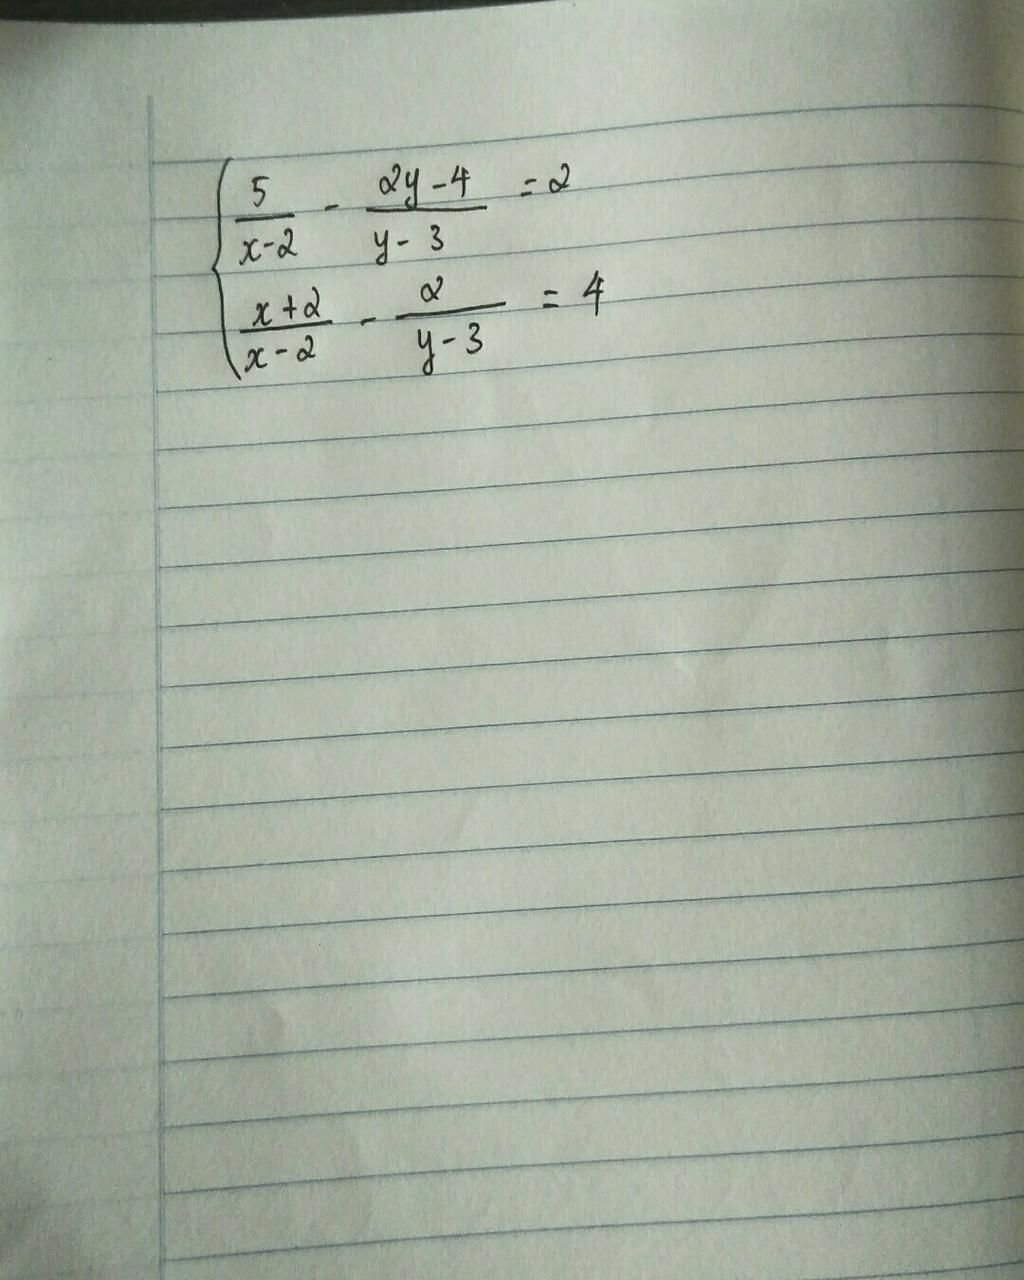 5/(x-2) - (2y-4)/(y-3) = 2
(x+2)/(x-2) - 2/(y-3) = 4